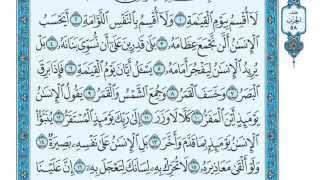 لَآ أُقْسِمُ بِيَوْمِ ٱلْقِيَٰمَةِ ١ وَلَآ أُقْسِمُ بِٱلنَّفْسِ ٱللَّوَّامَةِ ٢ أَيَحْسَبُ
ٱلْإِنسَٰنُ أَلَّن نَّجْمَعَ عِظَامَهُۥ ٣ بَلَىٰ قَٰدِرِينَ عَلَىٰٓ أَن نُّسَوِّيَ بَنَانَهُۥ ٤ بَلْ
يُرِيدُ ٱلْإِنسَٰنُ لِيَفْجُرَ أَمَامَهُۥ ٥ يَسْـَٔلُ أَيَّانَ يَوْمُ ٱلْقِيَٰمَةِ ٦ فَإِذَا بَرِقَ
ٱلْبَصَرُ ٧ وَخَسَفَ ٱلْقَمَرُ ٨ وَجُمِعَ ٱلشَّمْسُ وَٱلْقَمَرُ ٩ يَقُولُ ٱلْإِنسَٰنُ
يَوْمَئِذٍ أَيْنَ ٱلْمَفَرُّ ١٠ كَلَّا لَا وَزَرَ ١١ إِلَىٰ رَبِّكَ يَوْمَئِذٍ ٱلْمُسْتَقَرُّ ١٢ يُنَبَّؤُا۟
ٱلْإِنسَٰنُ يَوْمَئِذٍۭ بِمَا قَدَّمَ وَأَخَّرَ ١٣ بَلِ ٱلْإِنسَٰنُ عَلَىٰ نَفْسِهِۦ بَصِيرَةٌ ١٤
وَلَوْ أَلْقَىٰ مَعَاذِيرَهُۥ ١٥ لَا تُحَرِّكْ بِهِۦ لِسَانَكَ لِتَعْجَلَ بِهِۦٓ ١٦ إِنَّ عَلَيْنَا
الجزء